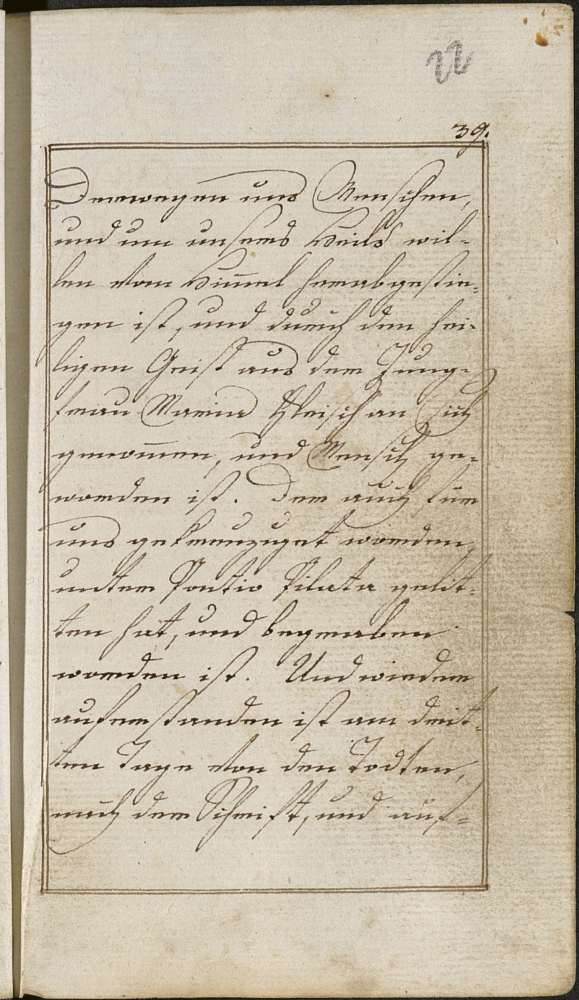 22
39.
Derwegen uns Menschen,
und um unsers Heils wil-
len von Him̄el herabgestie-
gen ist, und durch den hei-
ligen Geist aus der Jung-
frau Maria Fleisch an sich
genom̄en, und Mensch ge-
worden ist. Der auch für
uns gekreuziget worden,
unter Pontio Pilato gelit-
ten hat, und begraben
worden ist. Und wieder
auferstanden ist am drit-
ten Tage von den Todten,
nach der Schrift, und auf-